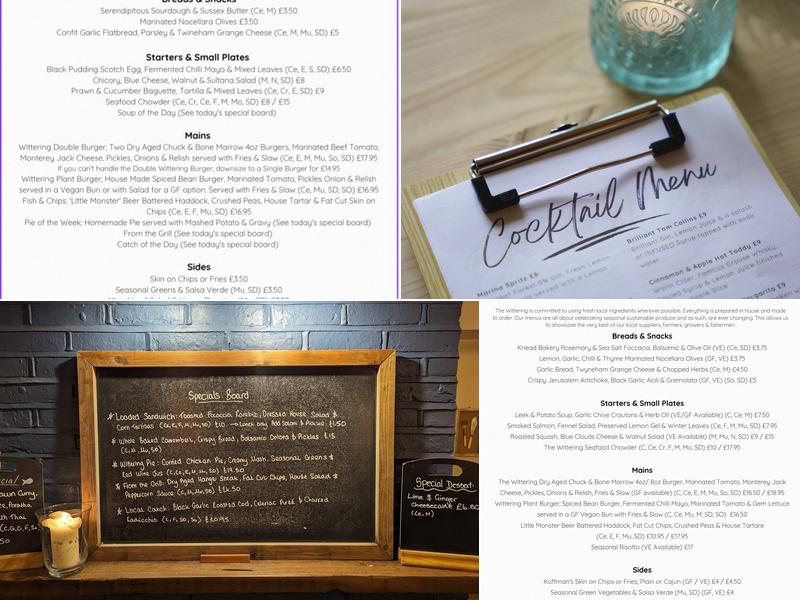 Breads & Snacks
Serendipitous Sourdough & Sussex Butter (Ce, M) £3.50
Marinated Nocellara Olives £3.50
Confit Garlic Flatbread, Parsley & Twineham Grange Cheese (Ce, M, Mu, SD) £5
Starters & Small Plates
Black Pudding Scotch Egg, Fermented Chilli Mayo & Mixed Leaves (Ce, E, S, SD) £6.50
Chicory, Blue Cheese, Walnut & Sultana Salad (M, N, SD) £8
Prawn & Cucumber Baguette, Tortilla & Mixed Leaves (Ce, Cr, E, SD) £9
Seafood Chowder (Ce, Cr, Ce, F, M, Mo, SD) £8 / £15
Soup of the Day (See today's special board)
Mains
Wittering Double Burger; Two Dry Aged Chuck & Bone Marrow 4oz Burgers, Marinated Beef Tomato,
Monterey Jack Cheese, Pickles, Onions & Relish served with Fries & Slaw (Ce, E, M, Mu, So, SD) £17.95
If you can't handle the Double Wittering Burger, downsize to a Single Burger for £14.95
Wittering Plant Burger; House Made Spiced Bean Burger, Marinated Tomato, Pickles Onion & Relish
served in a Vegan Bun or with Salad for a GF option. Served with Fries & Slaw (Ce, Mu, SD, SD) £16.95
Fish & Chips; 'Little Monster' Beer Battered Haddock, Crushed Peas, House Tartar & Fat Cut Skin on
Chips (Ce, E, F, Mu, SD) £16.95
Pie of the Week; Homemade Pie served with Mashed Potato & Gravy (See today's special board)
From the Grill (See today's special board)
Catch of the Day (See today's special board)
Sides
Skin on Chips or Fries £3.50
Seasonal Greens & Salsa Verde (Mu, SD) £3.50
Cocktail Menu
Brilliant Tom Collins £9
Brilliant Gin, Lemon Juice & a splash
of INFUSED Syrup topped with soda
water
Marina Spritz £6
Forest Gin, Fresh Lemon
served with a
Cinnamon & Apple Hot Toddy £9
Warm Cider, Famous Grouse Whisky,
Syrup & Lemon Juice finished
Apple Slice
Margarita £9
Specials Board
* Loaded Sandwich: Toasted Focaccia, Dressed House Salad &
Corn Tortillas £10 → Lunch only Add Salami & Pickles £1.50
* Whole Baked Camembert, Crispy Bread, Balsamic Onions & Pickles £18
(C, M, Mu, SO)
* Wittering Pie: Curried Chicken Pie, Creamy Mash, Seasonal Greens &
Red Wine Jus (C, Ce, E, M, Mu, SO) £17.50
* From the Grill: Dry Aged Hanger Steak, Fat Cut Chips, House Salad &
Peppercorn Sauce (C, M, Mu, SO)
* Local Catch: Black Garlic Roasted Cod, Celeriac Pureé & Charred
Radicchio (C, F, SO, SD) £20.95
Special
awn Curry,
Paratha
th Thai
50
Special Dessert:
Lime & Ginger
Cheesecake
(Ce, M)
The Wittering is committed to using fresh local ingredients wherever possible. Everything is prepared in house and made
to order. Our menus are all about celebrating seasonal sustainable produce and as such, are ever changing. This allows us
to showcase the very best of our local suppliers, farmers, growers & fishermen.
Breads & Snacks
Knead Bakery Rosemary & Sea Salt Foccacia, Balsamic & Olive Oil (VE) (Ce, SD) £3.75
Lemon, Garlic, Chilli & Thyme Marinated Nocellara Olives (GF, VE) £3.75
Garlic Bread, Twyneham Grange Cheese & Chopped Herbs (C, M) £4.50
Crispy Jerusalem Artichoke, Black Garlic Aioli & Gremolata (GF, VE) (So, SD) £5
Starters & Small Plates
Leek & Potato Soup, Garlic Chive Croutons & Herb Oil (VE/GF Available) (C, Ce, M) £7.50
Smoked Salmon, Fennel Salad, Preserved Lemon Gel & Winter Leaves (Ce, F, SD) £7.95
Roasted Squash, Blue Clouds Cheese & Walnut Salad (VE Available) (M, Mu, N, SD) £9 / £15
The Wittering Seafood Chowder (C, Ce, Cr, F, M, Mo, SD) £10 / £17.95
Mains
The Wittering Dry Aged Chuck & Bone Marrow 4oz/ 8oz Burger, Marinated Tomato, Monterey Jack
Cheese, Pickles, Onions & Relish, Fries & Slaw (GF available) (C, Ce, E, M, Mu, So, SD) £16.50 / £18.95
Wittering Plant Burger, Spiced Bean Burger, Fermented Chilli Mayo, Marinated Tomato & Gem Lettuce
served in a GF Vegan Bun with Fries & Slaw (C, Ce, Mu, M, SD, SO) £16.50
Little Monster Beer Battered Haddock, Fat Cut Chips, Crushed Peas & House Tartare
(Ce, E, F, Mu, SD) £10.95 / £17.95
Seasonal Risotto (VE Available) £17
Sides
Koffman's Skin on Chips or Fries; Plain or Cajun (GF / VE) £4 / £4.50
Seasonal Green Vegetables & Salsa Verde (Mu, SD) (GF, VE) £4